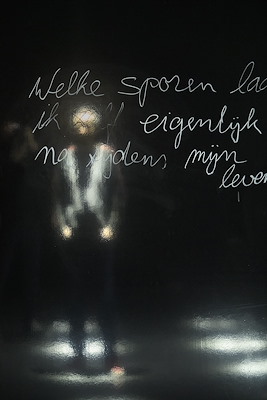 Welke sporen laa
ik eigenlijk
na tijdens mijn
leven